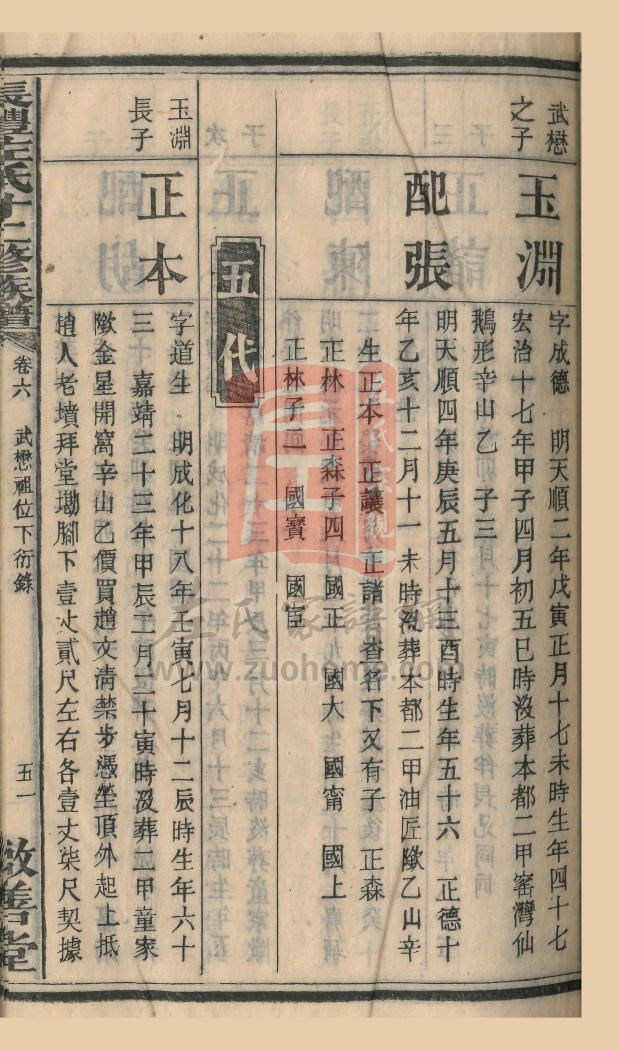 武懋
之子
玉淵
字成德　明天順二年戊寅正月十七未時生年四十七
宏治十七年甲子四月初五巳時沒葬本都二甲窰灣仙
鵝形辛山乙　子三
配張
明天順四年庚辰五月十三酉時生年五十六　正德十
年乙亥十二月十一未時沒葬本都二甲油匠歞乙山辛
生正本　正讓　正諸　舊查名下又有子　正森
正林　正森子四　國正　國大　國甯　國上
正林子二　國寶　國臣
五代
玉淵
長子
正本
字道生　明成化十八年壬寅七月十二辰時生年六十
三　嘉靖二十三年甲辰二月二十寅時沒葬二甲童家
歞金星開窩辛山乙價買趙文清禁步憑坐頂外起上抵
趙人老墳拜堂墈腳下壹丈貳尺左右各壹丈柒尺契據
長澧左氏十二修族譜
卷六　武懋祖位下衍錄
五一
敬善堂
左氏家譜網
www.zuohome.com